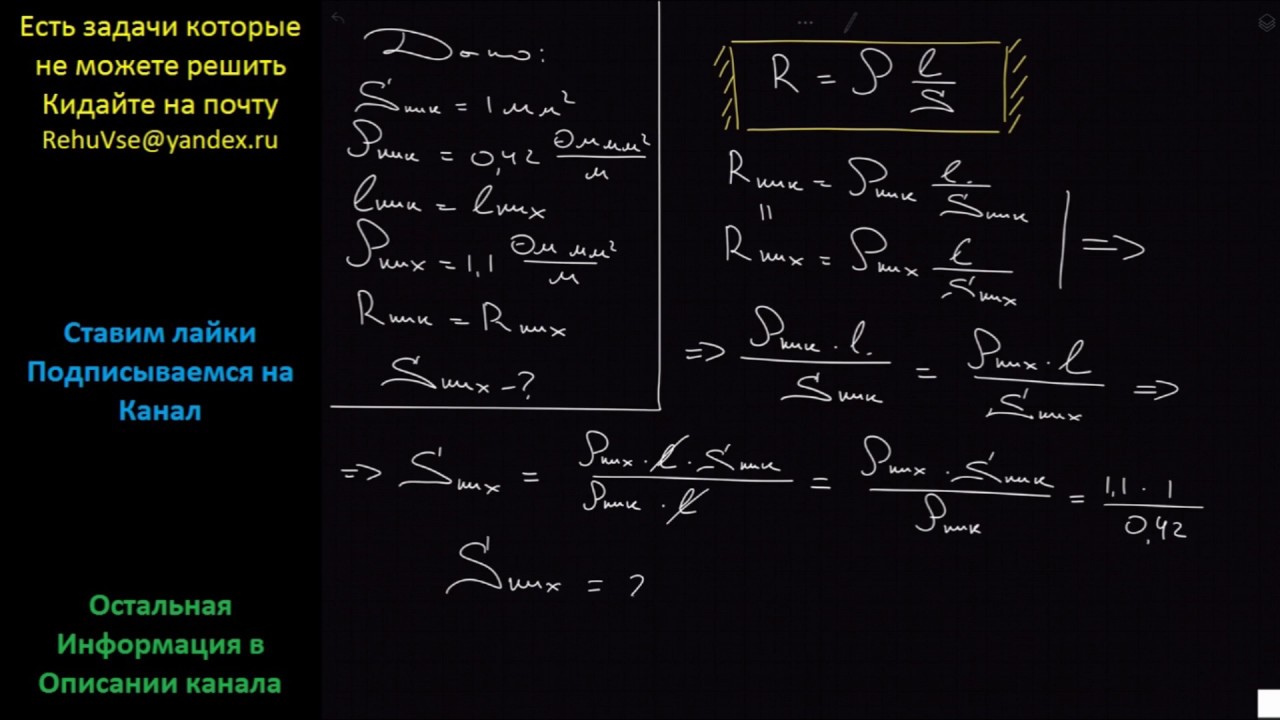 Есть задачи которые
не можете решить
Кидайте на почту
RehuVse@yandex.ru
Ставим лайки
Подписываемся на
Канал
Остальная
Информация в
Описании канала
Дано:
Sник = 1 мм²
ρник = 0,42 Ом мм²/м
lник = lних
ρних = 1,1 Ом мм²/м
Rник = Rних
Sних - ?
R = ρ l/S
Rник = ρник l/Sник
||
Rних = ρних l/Sних
=>
=> ρник · l/Sник = ρних · l/Sних =>
=> Sних = ρних · l · Sник/ρник · l = ρних · Sник/ρник = 1,1 · 1/0,42
Sних = 2